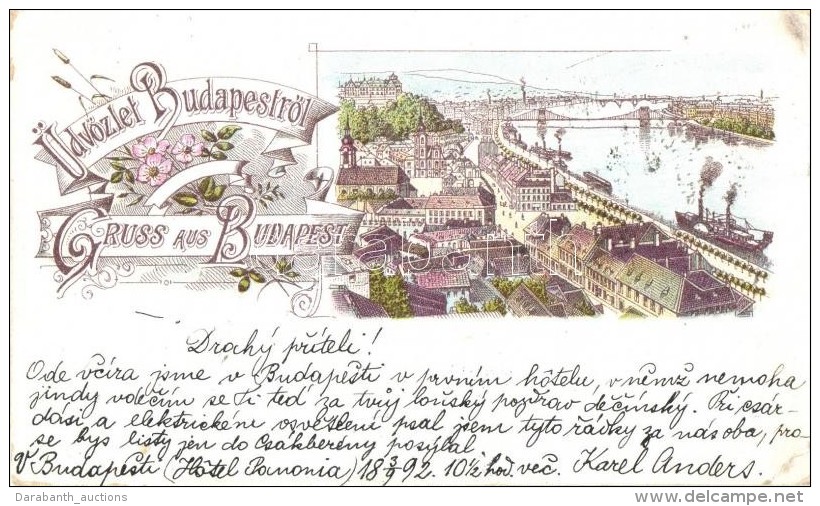 Üdvözlet Budapestről
Gruss aus Budapest
Drahý příteli!
Ode včíra jsme v Budapešti v prvním hôtelu, v němž nemoha
jindy vděčím se Ti teď za tvůj loňský pozdrav děčínský. Při csár-
dási a elektrickém osvětlení psal jsem tyto řádky za nás oba, pro-
se bys listy jen do Csákberény posýlal
V Budapešti (Hôtel Panonia) 18 3/9 92. 10½ hod. več. Karel Anders.
Darabanth_auctions
delcampe.net